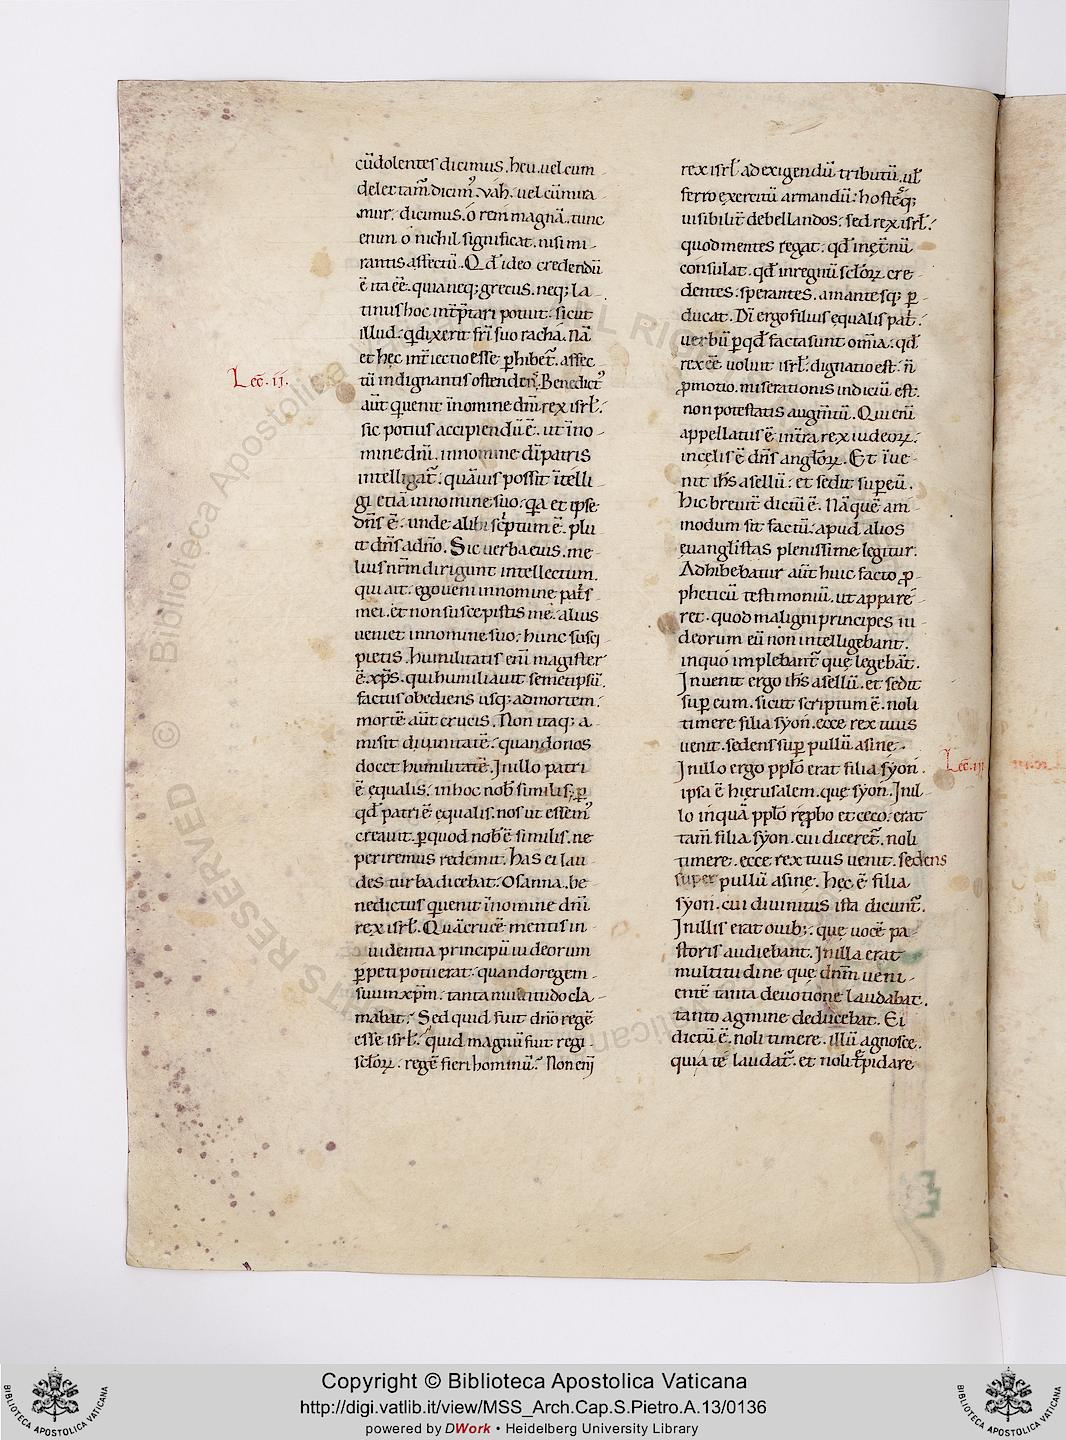 cū dolentes dicimus. heu. uel cum
delectam̄ dicim᷒. vah. uel cū mira
mur. dicimus. ó rem magnā. tunc
enim ó nichil significat. nisi mi-
rantis affectū. Qd̄ ideo credendū
ē ita eē. quia neq; grecus. neq; la
tinus hoc int̄p̄tari potuit. sicut
illud. qͥ dixerit fr̄i suo racha. Nā
et hęc int̄iectio esse ꝑhibet̄. affec
tū indignantis ostendens̄. Benedict᷒
aūt qͥ uenit in nomine dn̄i. rex isrł.
sic potius accipiendū ē. ut in no-
mine dn̄i. in nomine dī patris
intelligat̄. quāuis possit īntelli
gi etiā in nomine suo. qͥa et ipse
dn̄s ē. unde alibi sc̄ptum ē. plu
it dn̄s a dn̄o. Sic uerba eius. me-
lius nr̄m dirigunt intellectum.
qui ait. ego ueni in nomine pat̄s
mei. et non suscepistis me. alius
ueniet in nomine suo. hunc susci
pietis. humilitatis eni magister
ē xp̄s. qui humiliauit semetipsū.
factus obediens usq; ad mortem.
mortē aūt crucis. Non itaq; a
misit diuinitatē. quando nos
docet humilitatē. In illo patri
ē ęqualis. in hoc nob̄ similis. ꝑ
qd̄ patri ē ęqualis. nos ut essem᷒
creauit. ꝑ quod nob̄ ē similis. ne
periremus redemit. has ei lau-
des turba dicebat. Osanna. be-
nedictus qͥ uenit in nomine dn̄i
rex isrł. Quā crucē mentis in-
uidentia principū iudeorum
ꝑpeti poterat. quando regem
suum xp̄m. tanta multitudo cla-
mabat. Sed quid fuit dn̄o regē
esse isrł. quid magnū fuit regi
sc̄loꝝ. regē fieri hominū. Non eni
Lec̄. ii.
rex isrł ad exigendū tributū. uł
ferro exercitū armandū. hosteq;
uisibilit̄ debellandos. sed rex isrł.
quod mentes regat. qd̄ in ęt̄nū
consulat. qd̄ in regnū cęloꝝ cre-
dentes. sperantes. amantesq; ꝑ-
ducat. Dī ergo filius ęqualis pat̄.
uerbū ꝑ qd̄ facta sunt om̄ia. qd̄
rex eē uoluit isrł. dignatio est. n̄
ꝓmotio. miserationis indiciū est.
non potestatis augm̄tū. Qui enī
appellatus ē in t̄ra rex iudeoꝝ.
in cęlis ē dn̄s angłoꝝ. Et īnue-
nit ih̄s asellū. et sedit suꝑ eū.
hic breuit̄ dictū ē. Nā quēam
modum sit factū. apud alios
ęuanglistas plenissime legitur.
Adhibebatur aūt huic facto ꝓ
pheticū testimoniū. ut apparē-
ret. quod maligni principes iu-
deorum eū non intelligebant.
in quo implebant̄ quę legebāt.
Inuenit ergo ih̄s asellū. et sedit
suꝑ eum. sicut scriptum ē. noli
timere filia syon. ecce rex tuus
uenit. sedens suꝑ pullū asine.
In illo ergo pp̄lo erat filia syon.
ipsa ē hierusalem. quę syon. In il-
lo inquā pp̄lo rep̄bo et ceco. erat
tam̄ filia syon. cui diceret̄. noli
timere. ecce rex tuus uenit. sedens
super pullū asine. hec ē filia
syon. cui diuinitus ista dicunt̄.
In illis erat ouib;. quę uocē pa-
storis audiebant. In illa erat
multitudine quę dn̄m ueni-
entē tanta deuotione laudabat.
tanto agmine deducebat. Ei
dictū ē. noli timere. illū agnosce.
quia te laudat̄. et noli t̄pidare
Lec̄. iii
© Biblioteca Apostolica Vaticana
ALL RIGHTS RESERVED
Copyright © Biblioteca Apostolica Vaticana
http://digi.vatlib.it/view/MSS_Arch.Cap.S.Pietro.A.13/0136
powered by DWork • Heidelberg University Library
BIBLIOTECA APOSTOLICA VATICANA
BIBLIOTECA APOSTOLICA VATICANA